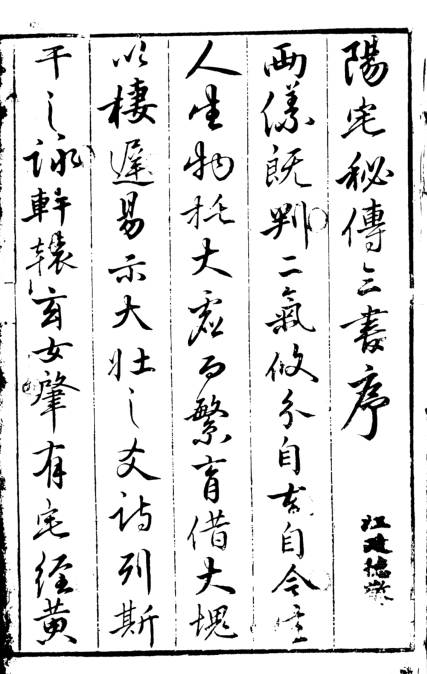 陽宅秘傳三書序
江
両儀既判二氣攸分自古自今生
人生物托大虚而繁育借大塊
以棲遲易示大壯之爻詩列斯
干之詠軒轅玄女肇有宅經黃